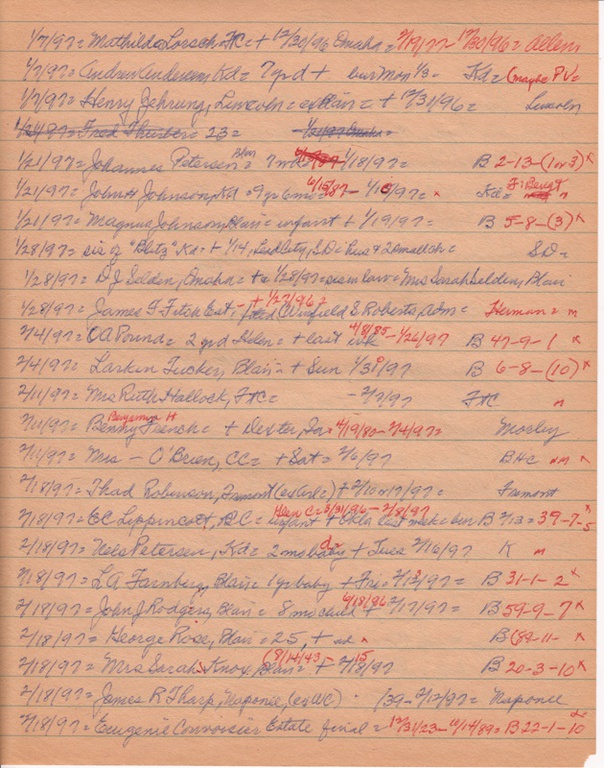 1/7/97= Mathilda Lorsch= FtC= + 12/30/96 Omaha= 2/19/77 - 12/30/96= Allens
1/7/97= Andrew Andersen, Kd= 7 yr d + bur Mon 1/3= Kd= (maybe PV=
1/7/97= Henry Jehrung, Lincoln= exBlair= + 12/31/96= Lincoln
1/21/97= Fred Thurber= 23= 1/21/97 Omaha=
1/21/97= Johannes Petersen= Blair 7 wk= 1/18/97= B 2-13-(1 or 3) x
1/21/97= John H Johnson, Kd= 9 yr 6 mo= 6/15/87 - 1/10/97= x Kd=
1/21/97= Magnus Johnson, Blair= infant + 1/19/97= B 5-8-(3) x
1/28/97= sis of "Blitz" Kd= + 1/14, SD= SD=
1/28/97= D J Selden, Omaha= + 1/28/97= sis in law= Mrs Sarah Selden, Blair
1/28/97= James F Fitch Est,= + 1/27/96= Winfield S Roberts, Adm= Herman= m
2/4/97= CA Pound= 2 yr d Helen= + last wk 4/8/85 - 1/26/97 B 47-9-1 x
2/4/97= Larkin Tucker, Blair= + Sun 1/31/97 B 6-8-(10) x
2/11/97= Mrs Ruth Hallock, FtC= - 2/7/97 FtC m
2/11/97= Benny French= Benjamin H + Dexter, Ia= 4/19/80 - 2/4/97= Mosley
2/11/97= Mrs - O'Brien, CC= + Sat= 2/6/97 BHC nm x
2/18/97= Thad Robinson, Fremont (ex + 2/10 or 17/97= Fremont
2/18/97= EC Lippincott, BC= infant + Okla last week= Glen C= 3/31/96 - 2/8/97 B 2/13= 39-7-5 x
2/18/97= Nels Petersen, Kd= 2 mo baby da= + Tues 2/16/97 K m
2/18/97= L A Farnberg, Blair= 1 yr baby + Fri= 2/12/97= B 31-1-2 x
2/18/97= John J Rodgers, Blair= 8 mo child + 6/18/96 - 2/17/97= B 59-9-7 x
2/18/97= George Rose, Blair= 25, + nd x B (59-11- x
2/18/97= Mrs Sarah Knox, Blair= (8/14/43 - + 2/15/97 B 20-3-10 x
2/18/97= James R Tharp, Naponee, (ex WC) . 139 - 2/12/97= Naponee
2/18/97= Eugenie Convoisier Estate final= 12/31/23 - 10/14/89= B 22-1-10 x